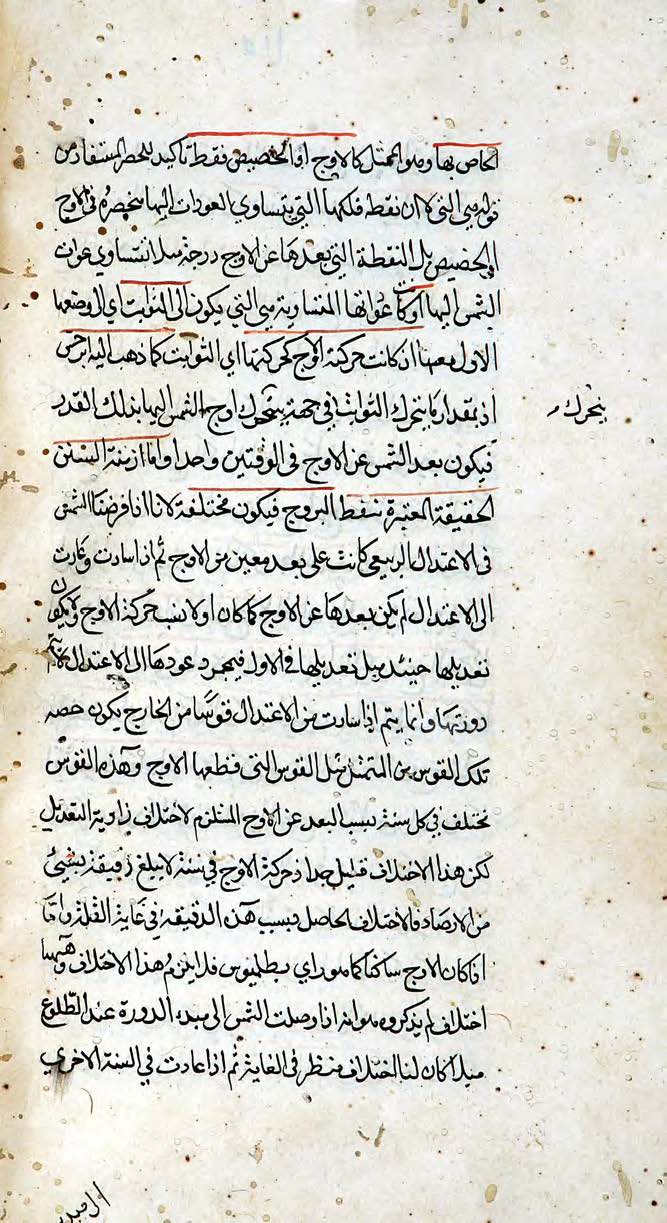 الخاص بها وهو الممثل كالاوج او الحضيض فقط تاكيد للحصر المستفاد من
قوله هي التي لا ان نقطه فلكهما التي يتساوي العودات اليها منحصرة في الاوج
والحضيض بل النقطة التي بعدها عن الاوج درجة مثلا تتساوي عودات
الشمس اليها او كانت عوداتها المتساوية هي التي يكون الى الثوابت اي الى وضعها
الاول معها ان كانت حركة الاوج كحركتها اي الثوابت كما ذهب اليه ابرخس
اذ بمقدار ما يتحرك الثوابت في جهة يتحرك اوج الشمس اليها بذلك القدر
يتحرك
فيكون بعد الشمس عن الاوج في الوقتين واحدا واما ازمنة السنين
الحقيقة المعتبرة بنقط البروج فيكون مختلفة لانا اذا فرضنا الشمس
في الاعتدال الربيعي كانت على بعد معين من الاوج ثم اذا سارت وعادت
الى الاعتدال لم يكن بعدها عن الاوج كما كان اولا بسبب حركة الاوج ولا يكون
تعديلها حينئذ مثل تعديلها في الاول فبمجرد عودها الى الاعتدال لا يتم
دورتها وانما يتم اذا سارت من الاعتدال قوسا من الخارج يكون حصه
تلك القوس من الممثل مثل القوس التي قطعها الاوج وهذه القوس
تختلف في كل سنة بسبب البعد عن الاوج المستلزم لاختلاف زاوية التعديل
لكن هذا الاختلاف قليل جدا اذ حركة الاوج في سنة لا يبلغ دقيقة بشيئ
من الارصاد فالاختلاف الحاصل بسبب هذه الدقيقة في غاية القلة واما
اذا كان الاوج ساكنا كما هو راي بطلميوس فلا يلزم هذا الاختلاف وههنا
اختلاف لم يذكروه هو انه اذا وصلت الشمس الى مبدء الدورة عند الطلوع
مثلا كان لها اختلاف منظر في الغاية ثم اذا عادت في السنة الاخري